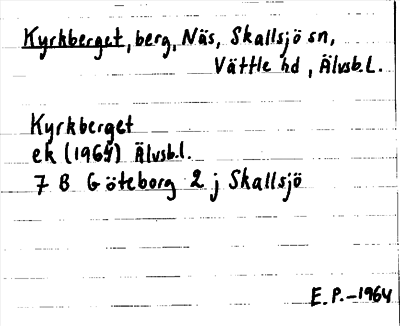 Kyrkberget, berg, Näs, Skallsjö sn,
Vättle hd, Älvsb.l.
Kyrkberget
ek (1964) Älvsb.l.
7 B Göteborg 2 j Skallsjö
E. P. - 1964